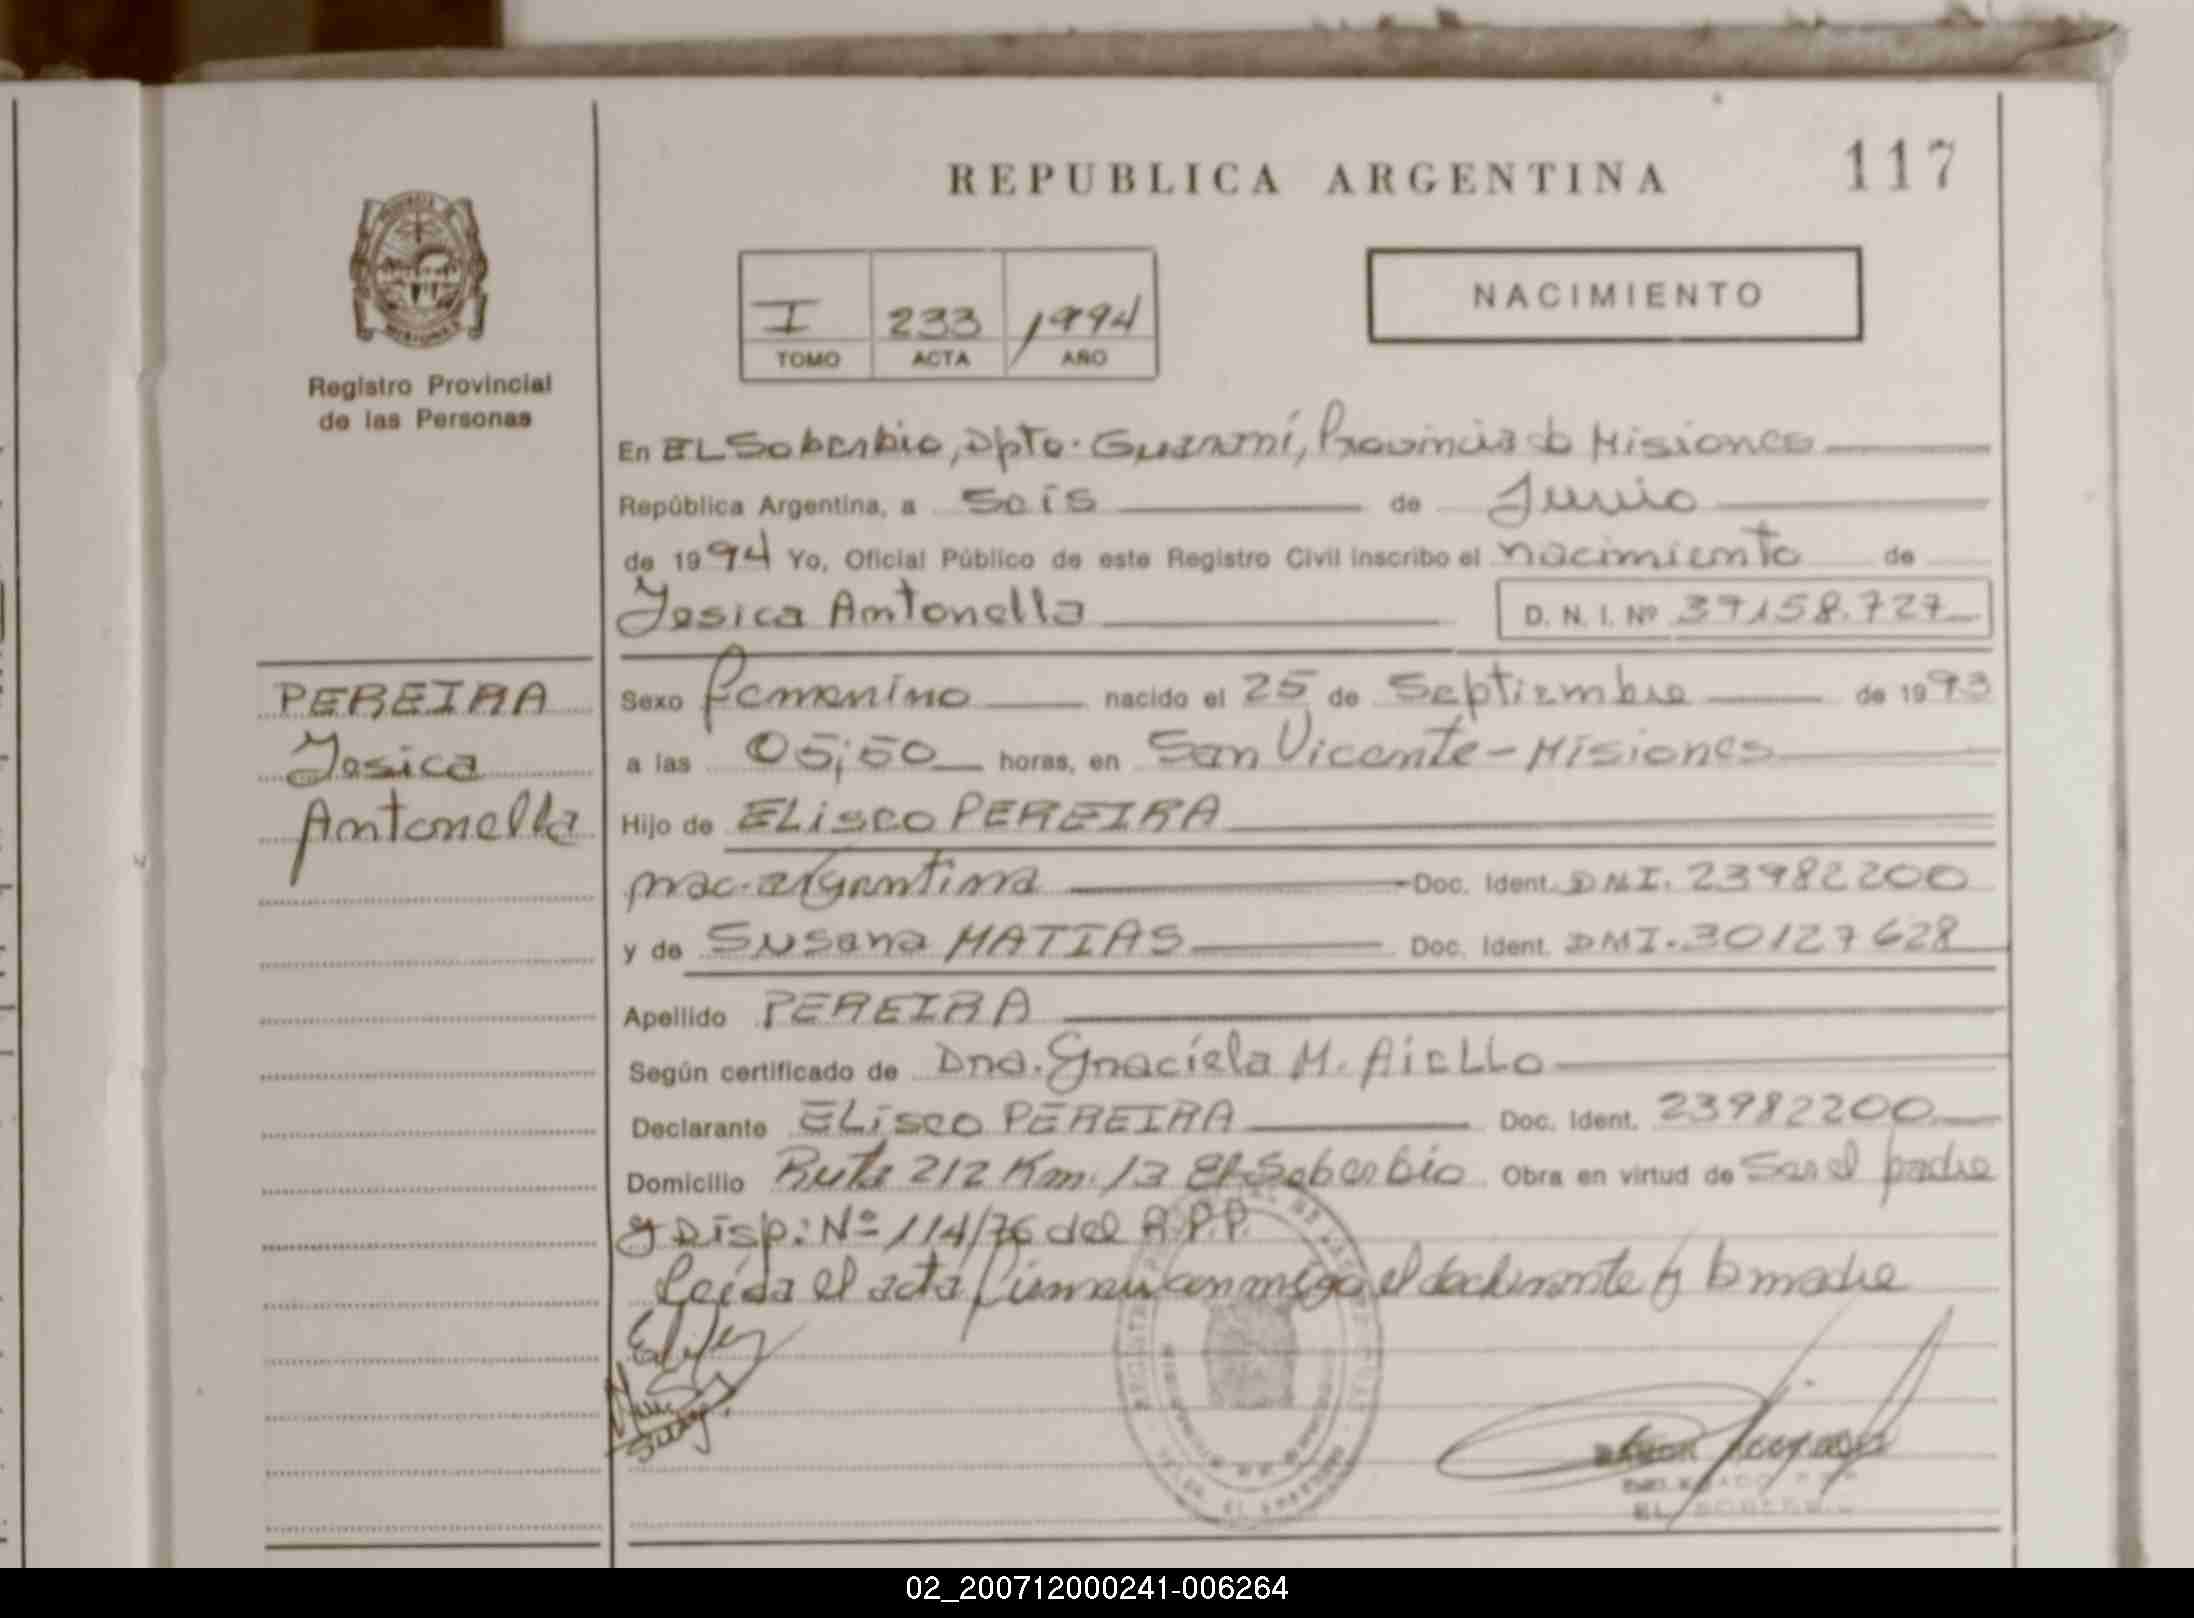 REPUBLICA ARGENTINA
117
Registro Provincial
de las Personas
I 233 1994
TOMO ACTA AÑO
NACIMIENTO
En EL Soberbio, Dpto. Guaraní, Provincia de Misiones
República Argentina, a Seis de Junio
de 1994 Yo, Oficial Público de este Registro Civil inscribo el nacimiento de
Yesica Antonella D. N. I. Nº 37158.727
PEREIRA
Yesica
Antonella
Sexo femenino nacido el 25 de Septiembre de 1993
a las 05,50 horas, en San Vicente - Misiones
Hijo de ELiseo PEREIRA
nac. argentina Doc. Ident. DNI. 23982200
y de Susana MATIAS Doc. Ident. DNI. 30127628
Apellido PEREIRA
Según certificado de Dra. Graciela M. AieLLo
Declarante ELiseo PEREIRA Doc. Ident. 23982200
Domicilio Ruta 212 Km. 13 EL Soberbio Obra en virtud de Ser el padre
y Disp: Nº 114/76 del R.P.P.
Leída el acta firman conmigo el declarante y la madre
EL SOBERBIO
02_200712000241-006264